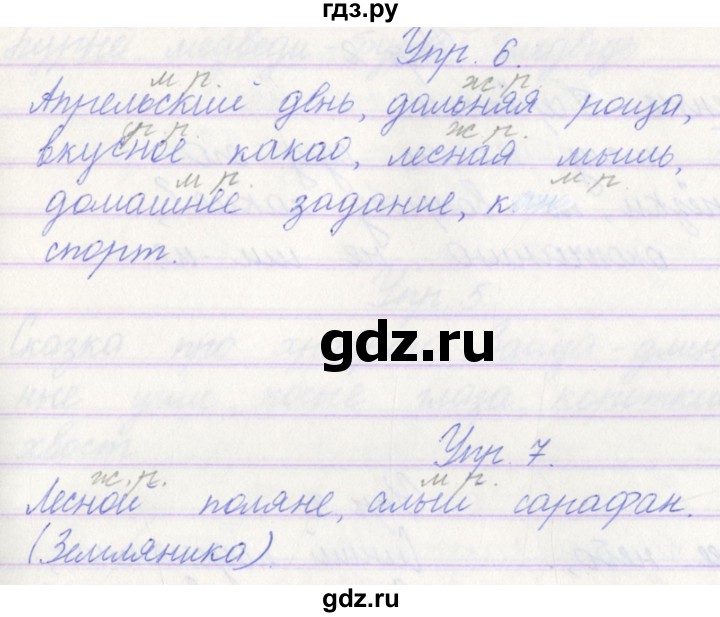 гдз.ру
Упр. 6.
м р. ж. р.
Апрельский день, дальняя роща,
р. р. ж. р.
вкусное какао, лесная мышь,
м р. м р.
домашнее задание,
спорт.
Упр 5
gdz.ru
Сказка про
глаза
хвост
Упр. 7.
ж. р. м р.
Лесной поляне, алый сарафан.
(Земляника).
gdz.ru